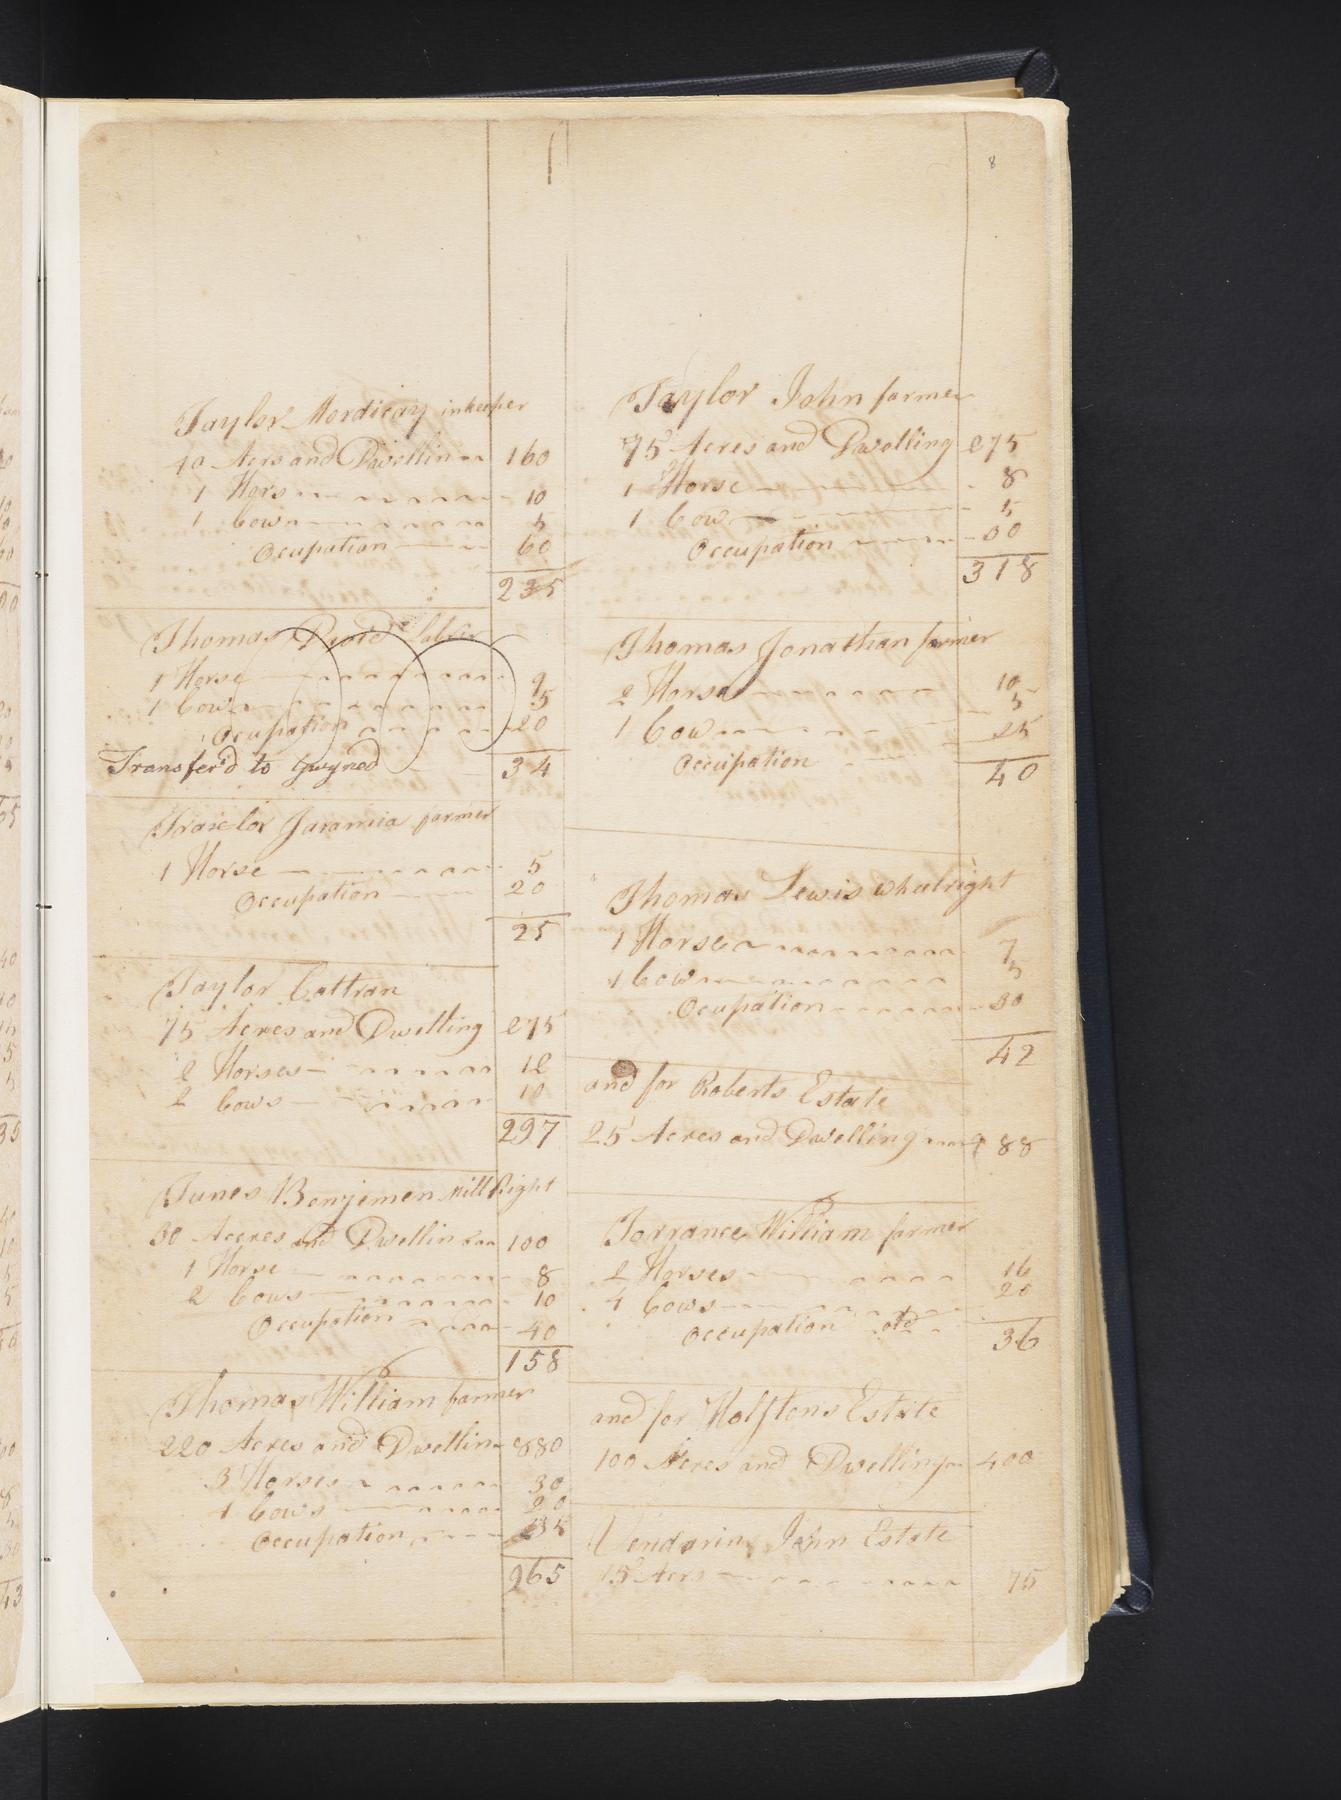 8
Taylor Mordicay inkeeper
40 Acrs and Dwellin 160
1 Hors 10
1 Cow 5
Ocupation 60
235
Thomas David labrer
1 Horse 9
1 Cow 5
Ocupation 20
Transfer'd to Gwyned 34
Traxclor Jaramia farmer
1 Horse 5
Occupation 20
25
Taylor Cattran
75 Acres and Dwelling 275
2 Horses 12
2 Cows 10
297
Tunes Benjemen Mill Right
30 Aceres and Dwellin 100
1 Horse 8
2 Cows 10
Occupation 40
158
Thomas William farmer
220 Acres and Dwellin 880
3 Horses 30
4 Cows 20
Occupation 35
965
Taylor John farmer
75 Acres and Dwelling 275
1 Horse 8
1 Cow 5
Occupation 30
318
Thomas Jonathan farmer
2 Horse 10
1 Cow 5
Occupation 25
40
Thomas Lewis wheelright
1 Horse 7
1 Cow 5
Ocupation 30
42
and for Roberts Estate
25 Acres and Dwelling 88
Torrance William farmer
2 Horses 16
4 Cows 20
Occupation old
36
and for Holstons Estate
100 Acres and Dwelling 400
John Estate
15 Acrs 75